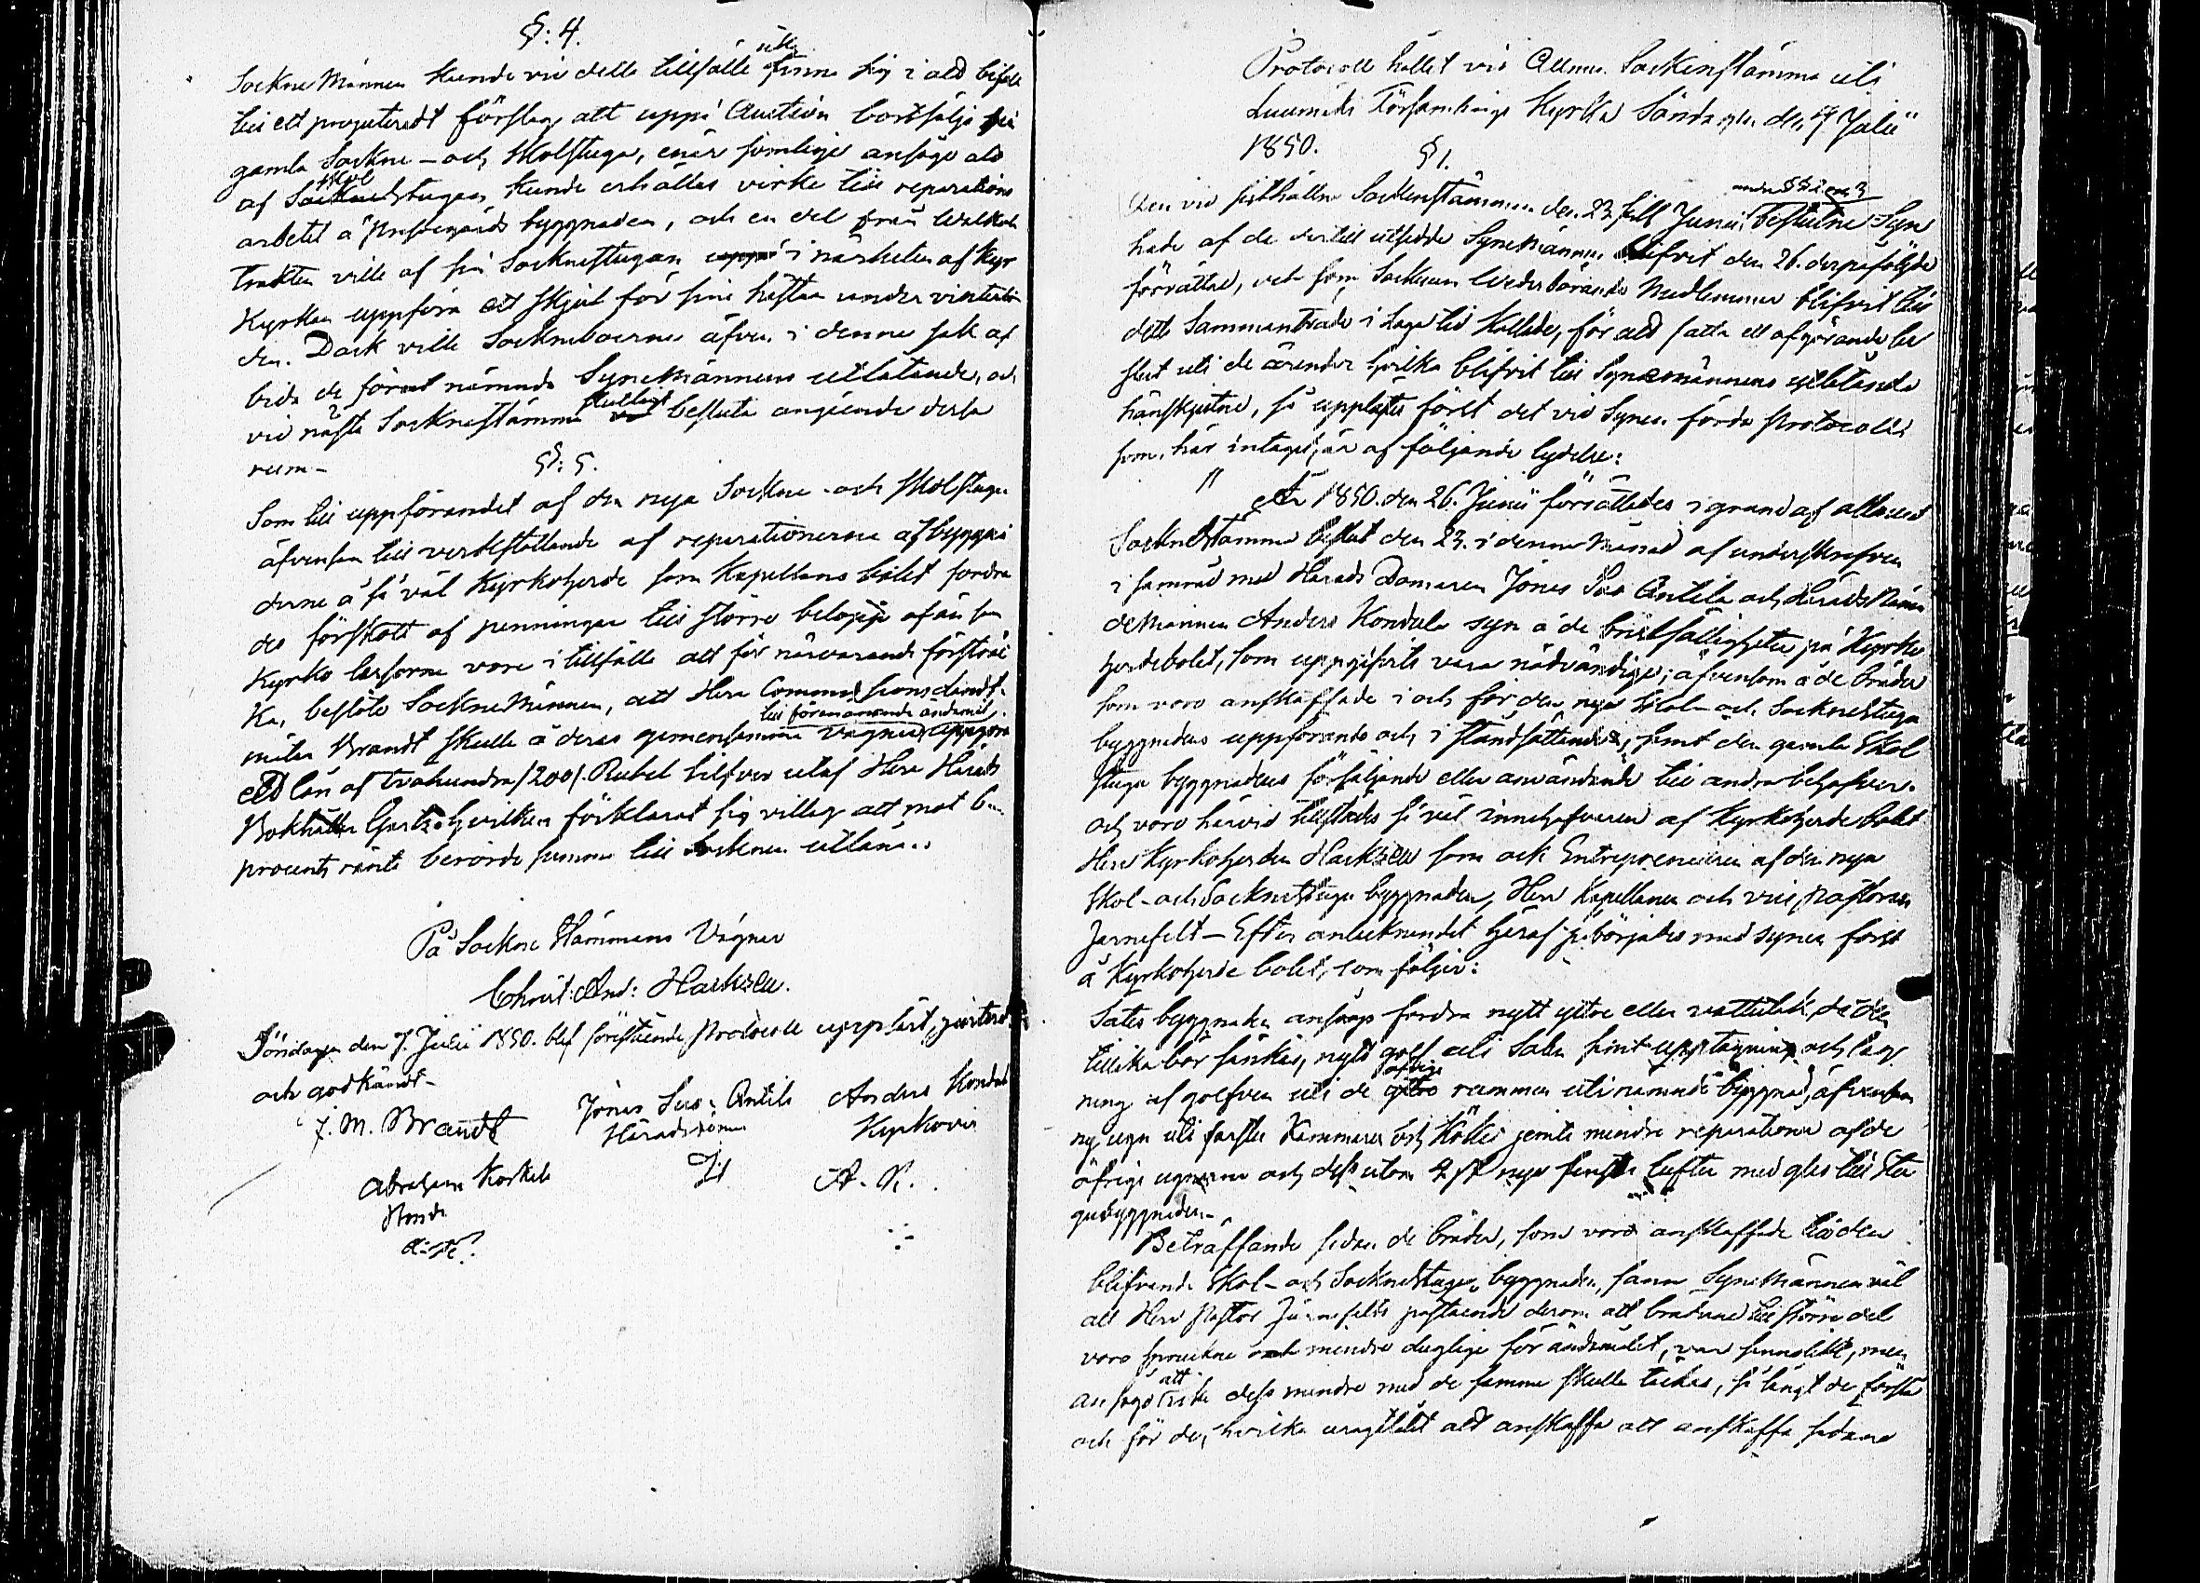 §: 4.
SockneMännen kunde vid detta tillfälle icke finna sig i att bifalla
till ett projecteradt förslag att uppå Auction bortsälja
gamla Sockne- och Skolstuga, enär somlige ansågo att
af Skolstugan kunde erhållas virke till reparations
arbetet å Prestegårds byggnaden, och en del från
trakten ville af Socknestugan i närheten af Kyr
Kyrkan uppföra ett skjul för sine hästar under vinterti
den. Dock ville Sockneboerne äfven i denne sak af
bida de förut nämnde SyneMännens utlåtande, och
vid nästa Socknestämma slutligt besluta angående dessa
rum-
§: 5.
Som till uppförandet af den nya Sockne- och Skolstugan
äfvensom till verkställande af reparationerne af byggna
derne å så väl Kyrkoherde som Kapellans bolet fordra
des förskott af penningar till större belopp än
Kyrko kassorne voro i tillfälle att för närvarande förstrec
ka, beslöto SockneMännen, att Herr Commissionslandt-
till förenämnde ändamål
mätar Brandt skulle å deras gemensamma vägnar upptaga
ett lån af tvåhundra /200/ Rubel Silfver utaf Herr Härads
Bokhållar hvilken förklarat sig villig att mot 6
procents ränta berörde summa till Socknen utlåna.
På Sockne Stämmans Vägnar
Christ: And: Hackzell.
Söndagen den 7. Julii 1850. blef förestående Protocoll uppläst, justerad
och godkändt-
J. M. Brandt Jöns Antila Anders Kondola
Häradsdomare Kyrkovärd
Abraham A. K.
Protocoll hållet vid Allmn. Sockenstämma uti
Luumäki Församlings Kyrka Söndagen den 7 Julii
1850. §1.
under §§ 2 och 3
Den vid sisthållne Sockenstämman den 23 sistl. Junii beslutne Syn
hade af de dertill utsedde SyneMännen blifvit den 26. derpåföljde
förrättad, och som Socknens Wederbörande Medlemmar blifvit till
detta Sammanträde i laga tid kallade, för att fatta ett afgörande be
slut uti de ärender hvilka blifvit till Synemännens utlåtande
hänskjutne, så upplästes först det vid Synen förda Protocollet
som, här intaget, är af följande lydelse:
" År 1850. den 26. Junii förrättades i grund af allmänt
Socknestämma beslut den 23. i denna Månad af undertecknad
i samråd med Härads Domaren Jöns Antila och HäradsNämn
deMannen Anders Kondola syn å de bristfälligheter på Kyrko
herdebolet, som uppgifvits vara nödvändige; äfvensom å de bräder
som voro anskaffade i och för den nya Skol- och Socknestuga
byggnadens uppförande och i ståndsättande, samt den gamla Skol
stuga byggnadens försäljande eller användande till andra behofver.
och voro härvid tillstädes så väl innehafvaren af Kyrkoherde bolet
Herr Kyrkoherden Hackzell som ock Entreprenören af den nya
Skol- och Socknestuga byggnaden, Herr Kapellanen och vice pastoren
Järnefelt- Efter antecknandet häraf påbörjades med synen först
å Kyrkoherde bolet, som följer:
Sätes byggnaden ansågs fordra nytt yttre eller vattutak, då den
tillika bör sänkas, nytt golf uti Salen samt upptagning och lag
ning af golfven uti de öfrige rummen uti nämnde byggnad, äfvensom
ny ugn uti farstu Kammaren och Köket jemte mindre reparationer af de
öfrige ugnarne och dess utom 4 st nya fenster lufter med glas till stu
gubyggnaden-
Beträffande sedan de bräder, som voro anskaffade till den
blifvande Skol- och Socknestuga byggnaden, fann SyneMännen väl
att Herr Pastor Järnefelts påstående derom att bräderne till större del
voro spruckne och mindre duglige för ändamålet, var sannolikt, men
ansågo att icke dess mindre med de samma skulle täckas, så långt de förslå
och för de, hvilka uraktlåtit att anskaffa att anskaffa sådane